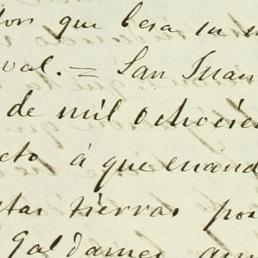 que besa su
val. = San Juan
de mil ochocien
cto á que cuand
tas tierras por
Galdames